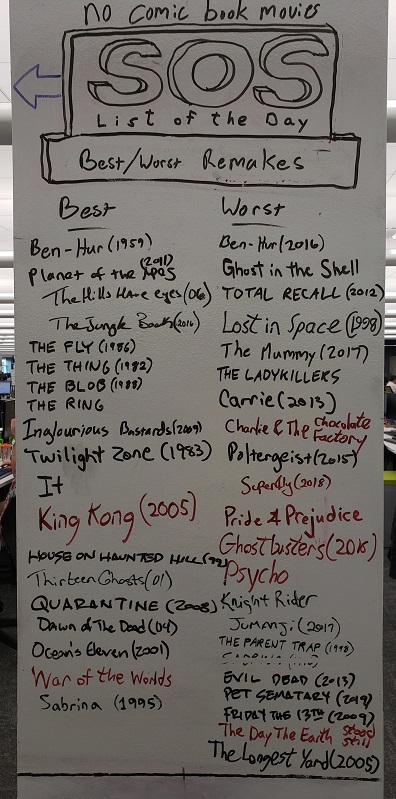 no Comic book movies
SOS
List of the Day
Best/Worst Remakes
Best
Ben-Hur (1959)
Planet of the Apes (2011)
The Hills Have eyes (06)
The Jungle Book (2016)
THE FLY (1986)
THE THING (1982)
THE BLOB (1988)
THE RING
Inglourious Bastards (2009)
Twilight Zone (1983)
It
King Kong (2005)
HOUSE ON HAUNTED HILL (99)
Thirteen Ghosts (01)
QUARANTINE (2008)
Dawn of The Dead (04)
Ocean's Eleven (2001)
War of the Worlds
Sabrina (1995)
Worst
Ben-Hur (2016)
Ghost in the Shell
TOTAL RECALL (2012)
Lost in Space (1998)
The Mummy (2017)
THE LADYKILLERS
Carrie (2013)
Charlie & The Chocolate Factory
Poltergeist (2015)
Superfly (2018)
Pride & Prejudice
Ghostbusters (2016)
Psycho
Knight Rider
Jumanji (2017)
THE PARENT TRAP (1998)
EVIL DEAD (2013)
PET SEMATARY (2019)
FRIDAY THE 13TH (2009)
The Day The Earth Stood Still
The Longest Yard (2005)